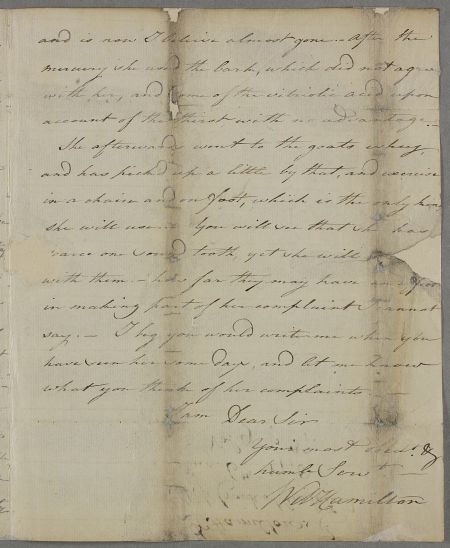 and is now I believe almost gone. After the
mercury she used the bark, which did not agree
with her, and some of the vitriolic acid upon
account of the thirst with no advantage. —
She afterward went to the goats whey,
and has picked up a little by that, and exercise
in a chaise and on foot, which is the only
she will use. You will see that she has
scarce one sound tooth, yet she will
with them. — how far they may have
in making part of her complaint I cannot
say. — I beg you would write me when you
have seen her some days, and let me know
what you think of her complaints
I am Dear Sir
Your most obedt. &
humble Servt
Hamilton